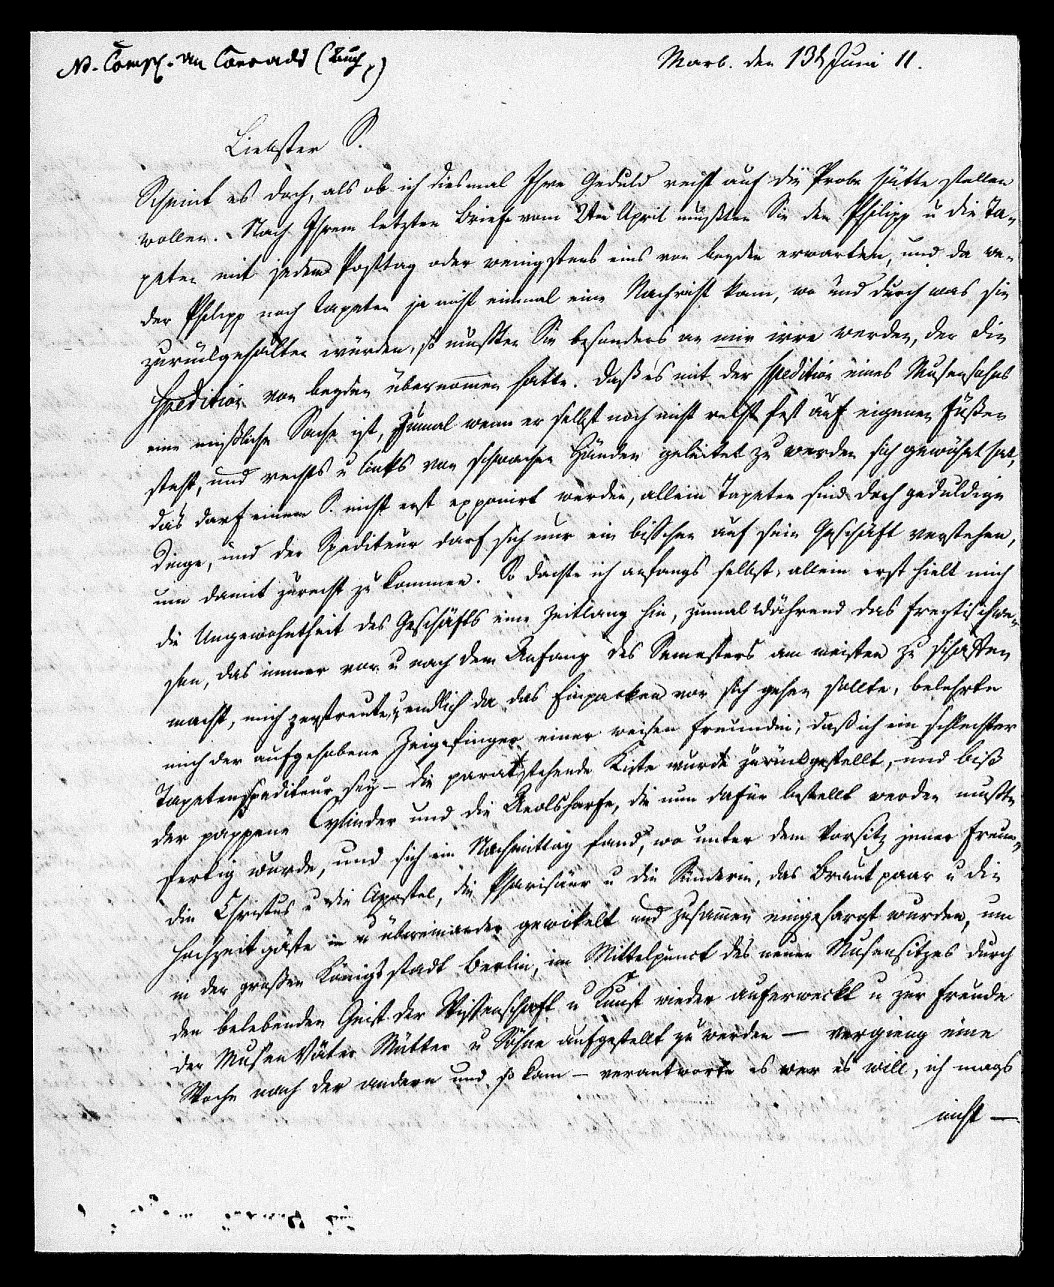 Marb. den 13t Juni 11.
Liebster S.
Scheint es doch, als ob ich diesmal Ihre Geduld recht auf die Probe hätte stellen
wollen. Nach Ihrem letzten Briefe vom April mußten Sie den Philipp u die Ta-
peten mit jedem Posttag oder wenigstens eins von beyden erwarten, und da we-
der Philipp noch Tapeten ja nicht einmal eine Nachricht kam, wo und durch was sie
zurükgehalten würden, so mußten Sie besonders an mir irre werden, der die
Spedition von beyden übernommen hatte. Daß es mit der Spedition eines Musensohns
eine mißliche Sache ist, zumal wenn er selbst noch nicht recht fest auf eigenen Füßen
steht, und rechts u links von schwachen Händen geleitet zu werden sich gewöhnt hat,
das darf einem S. nicht erst exponirt werden, allein Tapeten sind doch geduldige
Dinge, und der Spediteur darf sich nur ein bisschen auf sein Geschäft verstehen,
um damit zurecht zu kommen. So dachte ich anfangs selbst, allein erst hielt mich
die Ungewohntheit des Geschäfts eine Zeitlang hin, zumal während das
sen, das immer vor u nach dem Anfang des Semesters am meisten zu schaffen
macht, mich zerstreute, endlich da das Einpacken vor sich gehen sollte, belehrte
mich der aufgehobene Zeigefinger einer weisen Freundin, daß ich ein schlechter
Tapetenspediteur sey – die parat stehende Kiste wurde zurückgestellt, und biß
der pappene Cylinder und die Aeolsharfe, die nun dafür bestellt werden mußte
fertig wurde, und sich ein Nachmittag fand, wo unter dem Vorsitz jener Freun-
din Christus u die Apostel, die Pharisäer u die Sünderin, das Brautpaar u die
Hochzeitgäste in u übereinander gewickelt und zusammen eingesargt wurden, um
in der großen Königsstadt Berlin, im Mittelpunct des neuen Musensitzes durch
den belebenden Geist der Wissenschaft u Kunst wieder auferweckt u zur Freude
der MusenVäter Mütter u Söhne aufgestellt zu werden — vergieng eine
Woche nach der andern und so kam – verantworte es wer es will, ich mags
nicht —